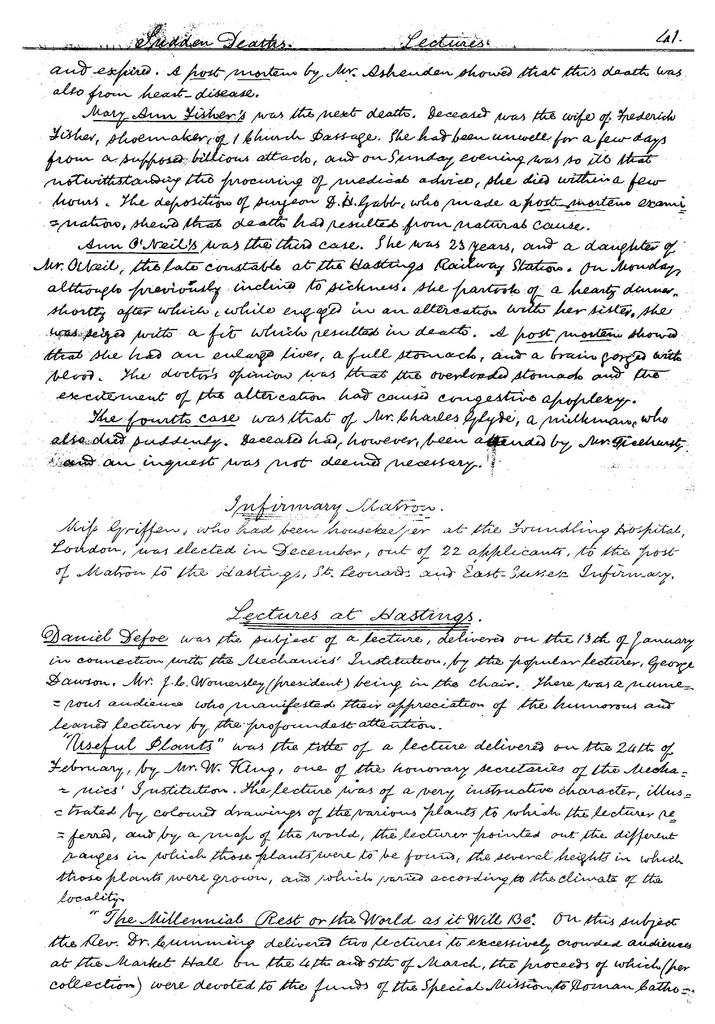 Sudden Deaths. Lectures. 41.
and expired. A post mortem by Mr. Ashenden showed that this death was
also from heart-disease.
Mary Ann Fisher's was the next death. Deceased was the wife of Frederick
Fisher, shoemaker, of 1 Church Passage. She had been unwell for a few days
from a supposed billious attack, and on Sunday evening was so ill that
notwithstanding the procuring of medical advice, she died within a few
hours. The deposition of surgeon D. H. Gabb, who made a post mortem exami-
=nation, shewd that death had resulted from natural cause.
Ann O'Neil's was the third case. She was 23 years, and a daughter of
Mr. O'Neil, the late constable at the Hastings Railway Station. On Monday,
although previously inclind to sickness, she partook of a hearty dinner,
shortly after which, while engaged in an altercation with her sister, she
was seized with a fit which resulted in death. A post mortem showed
that she had an enlargd liver, a full stomach, and a brain gorged with
blood. The doctor's opinion was that the overloaded stomach and the
excitement of the altercation had caused congestive apoplexy.
The fourth case was that of Mr. Charles Glyde, a milkman, who
also died suddenly. Deceased had, however, been attended by Mr. Ticehurst
and an inquest was not deemed necessary.
Infirmary Matron.
Miss Griffen, who had been housekeeper at the Foundling Hospital,
London, was elected in December, out of 22 applicants, to the post
of Matron to the Hastings, St. Leonards and East-Sussex Infirmary.
Lectures at Hastings.
Daniel Defoe was the subject of a lecture, delivered on the 13th of January
in connection with the Mechanics' Institution, by the popular lecturer, George
Dawson. Mr. J. C. Womersley (president) being in the chair. There was a nume=
=rous audience who manifested their appreciation of the humorous and
leaned lecturer by the profoundest attention.
"Useful Plants" was the title of a lecture delivered on the 24th of
February, by Mr. W. King, one of the honorary secretaries of the Mecha=
=nics' Institution. The lecture was of a very instructive character, illus=
=trated by coloured drawings of the various plants to which the lecturer re=
=ferred, and by a map of the world, the lecturer pointed out the different
ranges in which those plants were to be found, the several heights in which
those plants were grown, and which varied according to the climate of the
locality.
"The Millennial Rest or the World as it Will Be". On this subject
the Rev. Dr. Cumming delivered two lectures to excessively crowded audiences
at the Market Hall on the 4th and 5th of March, the proceeds of which (per
collection) were devoted to the funds of the Special Mission to Roman Catho=